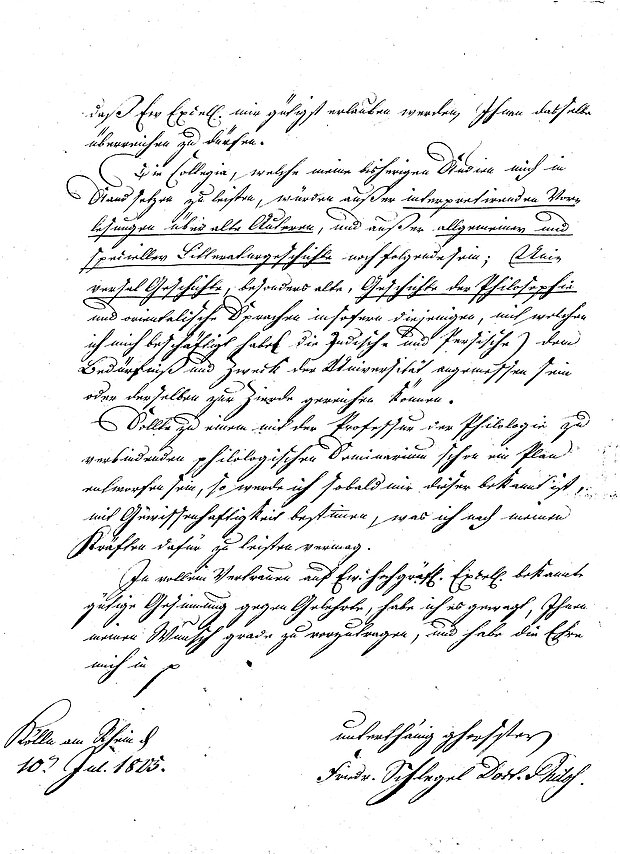 daß Ew Excell. mir gütigst erlauben werden, Ihnen dasselbe
überreichen zu dürfen.
Die Collegia, welche meine bisherigen Studien mich in
Stand setzen zu leisten, würden außer interpretirenden Vor-
lesungen über alte Autoren, und außer allgemeiner und
specieller Litteraturgeschichte noch folgende sein; Uni-
versal Geschichte, besonders alte, Geschichte der Philosophie
und orientalische Sprachen insofern diejenigen, mit welchen
ich mich beschäftigt habe (die Indische und Persische) dem
Bedürfniß und Zweck der Universität angemessen sein
oder derselben zur Zierde gereichen können.
Sollte zu einem mit der Professur der Philologie zu
verbindenden philologischen Seminarium schon ein Plan
entworfen sein, so werde ich sobald mir dieser bekannt ist,
mit Gewissenhaftigkeit bestimmen, was ich nach meinen
Kräften dafür zu leisten vermag.
In vollem Vertrauen auf Ew. Hochgräfl. Excell. bekannte
gütige Gesinnung gegen Gelehrte, habe ich es gewagt, Ihnen
meinen Wunsch grade zu vorzutragen, und habe die Ehre
mich in
Kölln am Rhein d
10t Jul. 1805.
unterthänig gehorsamster
Friedr. Schlegel Doct. Philos.